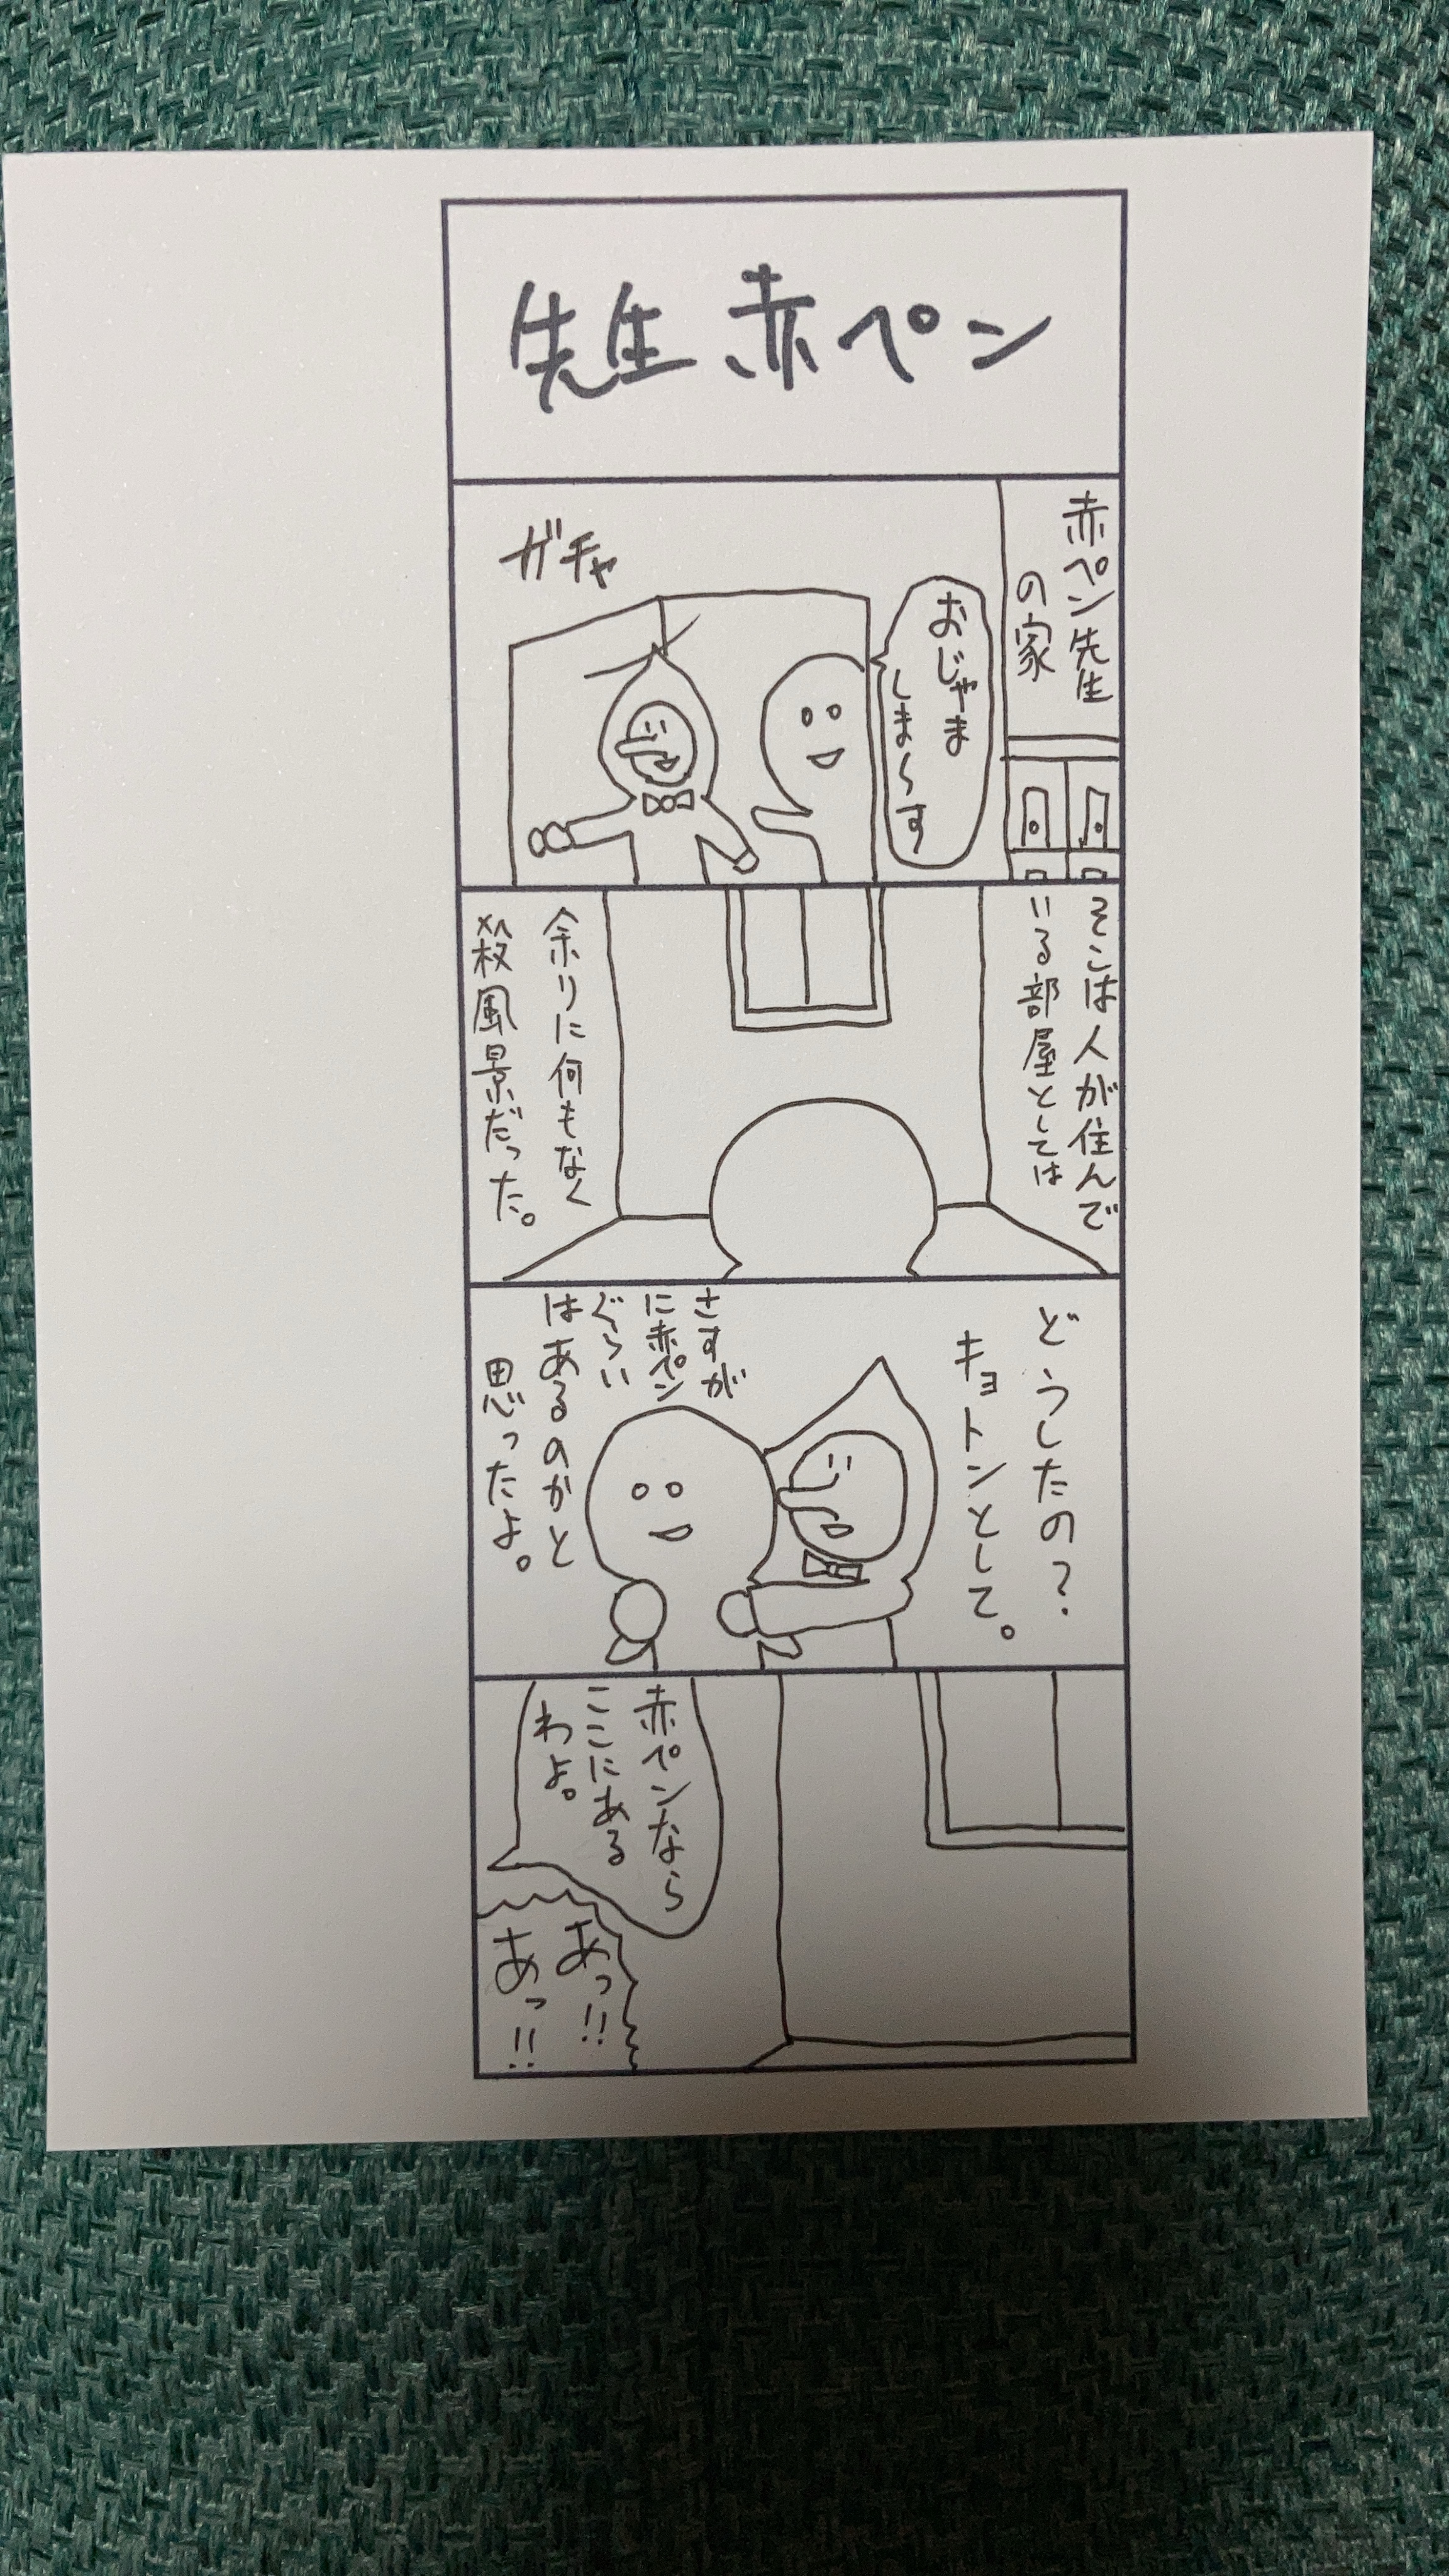 先生 赤ペン
赤ペン先生
の家
おじゃま
しま〜す
ガチャ
そこは人が住んで
いる部屋としては
余りに何もなく
殺風景だった。
どうしたの?
キョトンとして。
さすが
に赤ペン
ぐらい
はあるのかと
思ったよ。
赤ペンなら
ここにある
わよ。
あっ!!
あっ!!